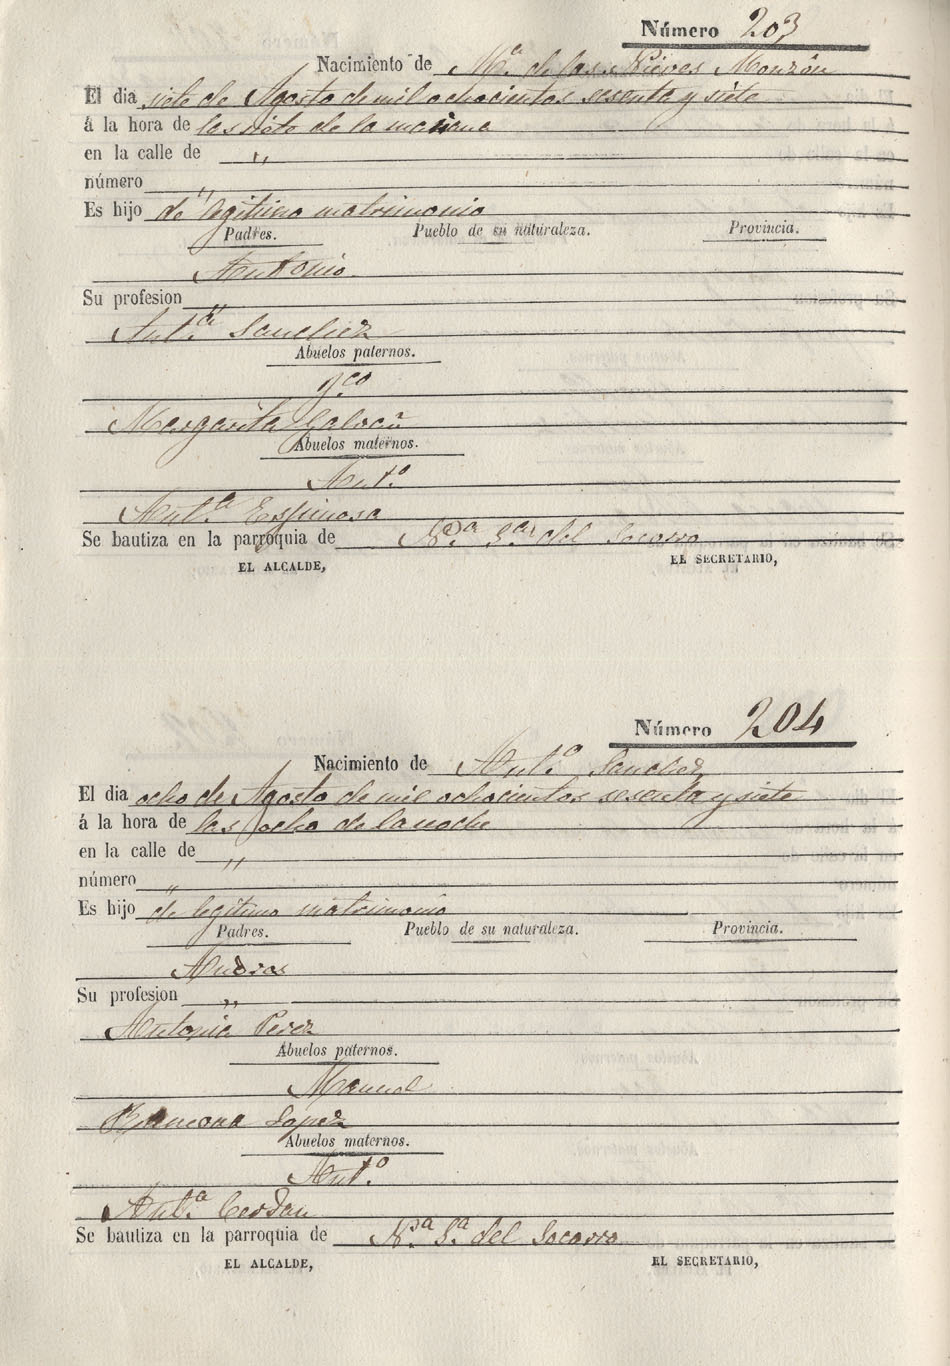 Número 203
Nacimiento de Mª. de las Nieves Monzón
El dia siete de Agosto de mil ochocientos sesenta y siete
á la hora de las siete de la mañana
en la calle de "
número "
Es hijo de legitimo matrimonio
Padres. Pueblo de su naturaleza. Provincia.
Antonio
Su profesion "
Antª. Sanchez
Abuelos paternos.
Fco
Margarita Galvañ
Abuelos maternos.
Antº
Antª. Espinosa
Se bautiza en la parroquia de Nª. Sª. del Socorro
EL ALCALDE, EL SECRETARIO,
Número 204
Nacimiento de Antº. Sanchez
El dia ocho de Agosto de mil ochocientos sesenta y siete
á la hora de las ocho de la noche
en la calle de "
número "
Es hijo de legitimo matrimonio
Padres. Pueblo de su naturaleza. Provincia.
Andres
Su profesion "
Antonia Perez
Abuelos paternos.
Manuel
Ramona Lopez
Abuelos maternos.
Antº.
Antª. Cerdan
Se bautiza en la parroquia de Nª. Sª. del Socorro
EL ALCALDE, EL SECRETARIO,